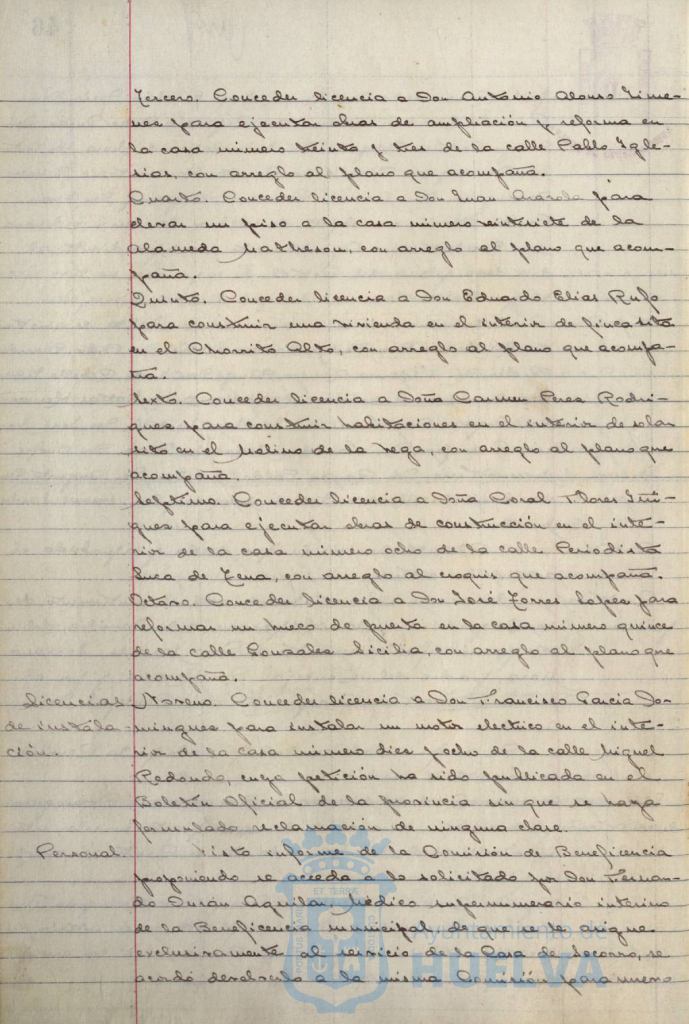 Tercero. Conceder licencia a Don Antonio Alonso Gime-
nez para ejecutar obras de ampliación y reforma en
la casa número treinta y tres de la calle Pablo Igle-
sias, con arreglo al plano que acompaña.
Cuarto. Conceder licencia a Don Juan para
elevar un piso a la casa número veintisiete de la
Alameda Matheson, con arreglo al plano que acom-
paña.
Quinto. Conceder licencia a Don Eduardo Elias Rufo
para construir una vivienda en el interior de finca sita
en el Chorrito Alto, con arreglo al plano que acompa-
ña.
Sexto. Conceder licencia a Doña Carmen Perez Rodri-
guez para construir habitaciones en el interior de solar
sito en el Molino de la Vega, con arreglo al plano que
acompaña.
Septimo. Conceder licencia a Doña Coral Flores Iñi-
guez para ejecutar obras de construcción en el inte-
rior de la casa número ocho de la calle Periodista
Luca de Tena, con arreglo al croquis que acompaña.
Octavo. Conceder licencia a Don José Torres Lopez para
reformar un hueco de puerta en la casa número quince
de la calle Gonzalez Sicilia, con arreglo al plano que
acompaña.
Licencias
de instala-
ción.
Noveno. Conceder licencia a Don Francisco Garcia Do-
minguez para instalar un motor electrico en el inte-
rior de la casa número diez y ocho de la calle Miguel
Redondo, cuya petición ha sido publicada en el
Boletin Oficial de la provincia sin que se haya
formulado reclamación de ninguna clase.
Personal.
Visto informe de la Comisión de Beneficencia
proponiendo se acceda a lo solicitado por Don Fernan-
do Durán Aguilar, Médico supernumerario interino
de la Beneficencia municipal, de que se le asigne
exclusivamente al servicio de la Casa de Socorro, se
acordó devolverlo a la misma Comisión para nuevo
Ayuntamiento de
HUELVA